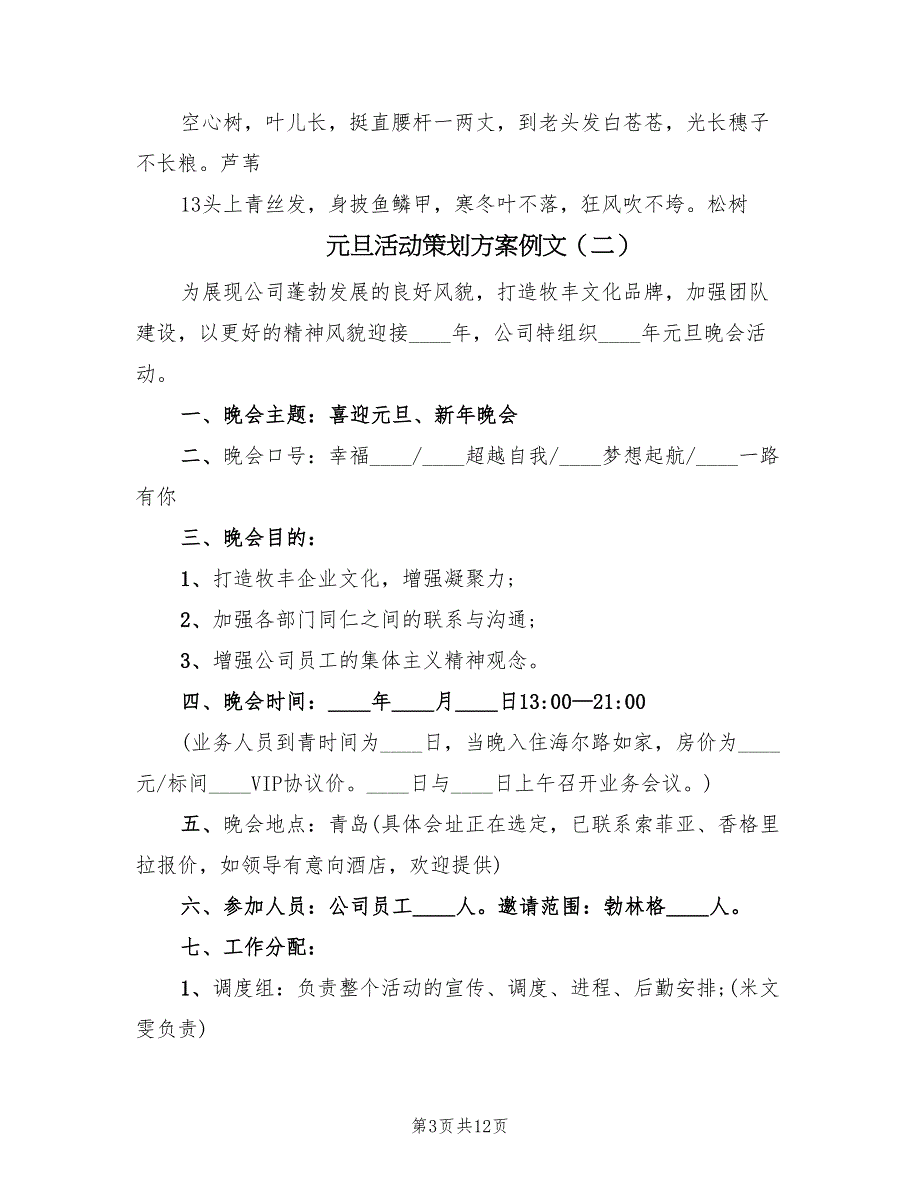 空心树，叶儿长，挺直腰杆一两丈，到老头发白苍苍，光长穗子
不长粮。芦苇
13头上青丝发，身披鱼鳞甲，寒冬叶不落，狂风吹不垮。松树
元旦活动策划方案例文（二）
为展现公司蓬勃发展的良好风貌，打造牧丰文化品牌，加强团队
建设，以更好的精神风貌迎接____年，公司特组织____年元旦晚会活
动。
一、晚会主题：喜迎元旦、新年晚会
二、晚会口号：幸福____/____超越自我/____梦想起航/____一路
有你
三、晚会目的：
1、打造牧丰企业文化，增强凝聚力;
2、加强各部门同仁之间的联系与沟通;
3、增强公司员工的集体主义精神观念。
四、晚会时间：____年____月____日13:00—21:00
(业务人员到青时间为____日，当晚入住海尔路如家，房价为____
元/标间____VIP协议价。____日与____日上午召开业务会议。)
五、晚会地点：青岛(具体会址正在选定，已联系索菲亚、香格里
拉报价，如领导有意向酒店，欢迎提供)
六、参加人员：公司员工____人。邀请范围：勃林格____人。
七、工作分配：
1、调度组：负责整个活动的宣传、调度、进程、后勤安排;(米文
雯负责)
第3页共12页